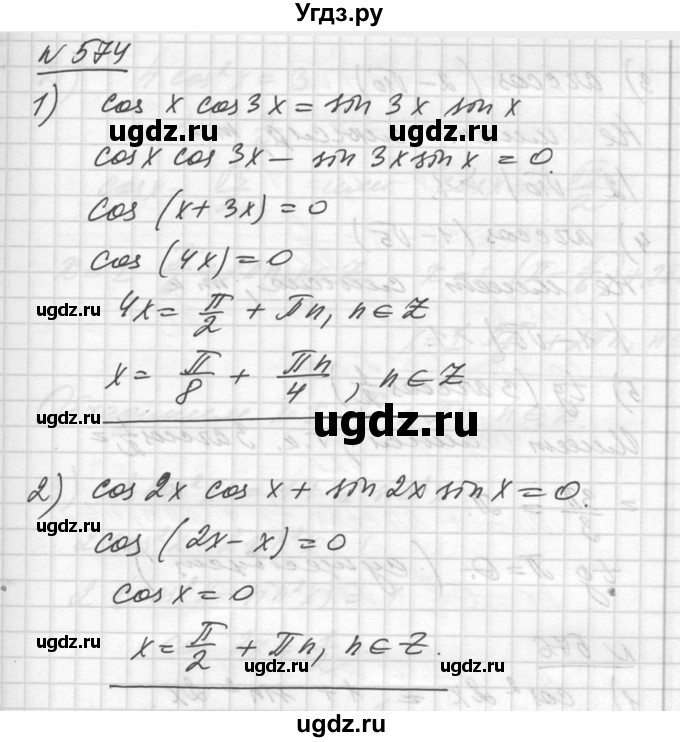 Угдз.ру
№ 574
1) cos x cos 3x = sin 3x sin x
ugdz.ru ugdz.ru
cos x cos 3x − sin 3x sin x = 0.
cos (x + 3x) = 0
cos (4x) = 0
4x = π/2 + πn, n ∈ Z
ugdz.ru
x = π/8 + πn/4, n ∈ Z
ugdz.ru ugdz.ru
2) cos 2x cos x + sin 2x sin x = 0.
cos (2x − x) = 0
cos x = 0
x = π/2 + πn, n ∈ Z.
ugdz.ru ugdz.ru ugdz.ru
ugdz.ru